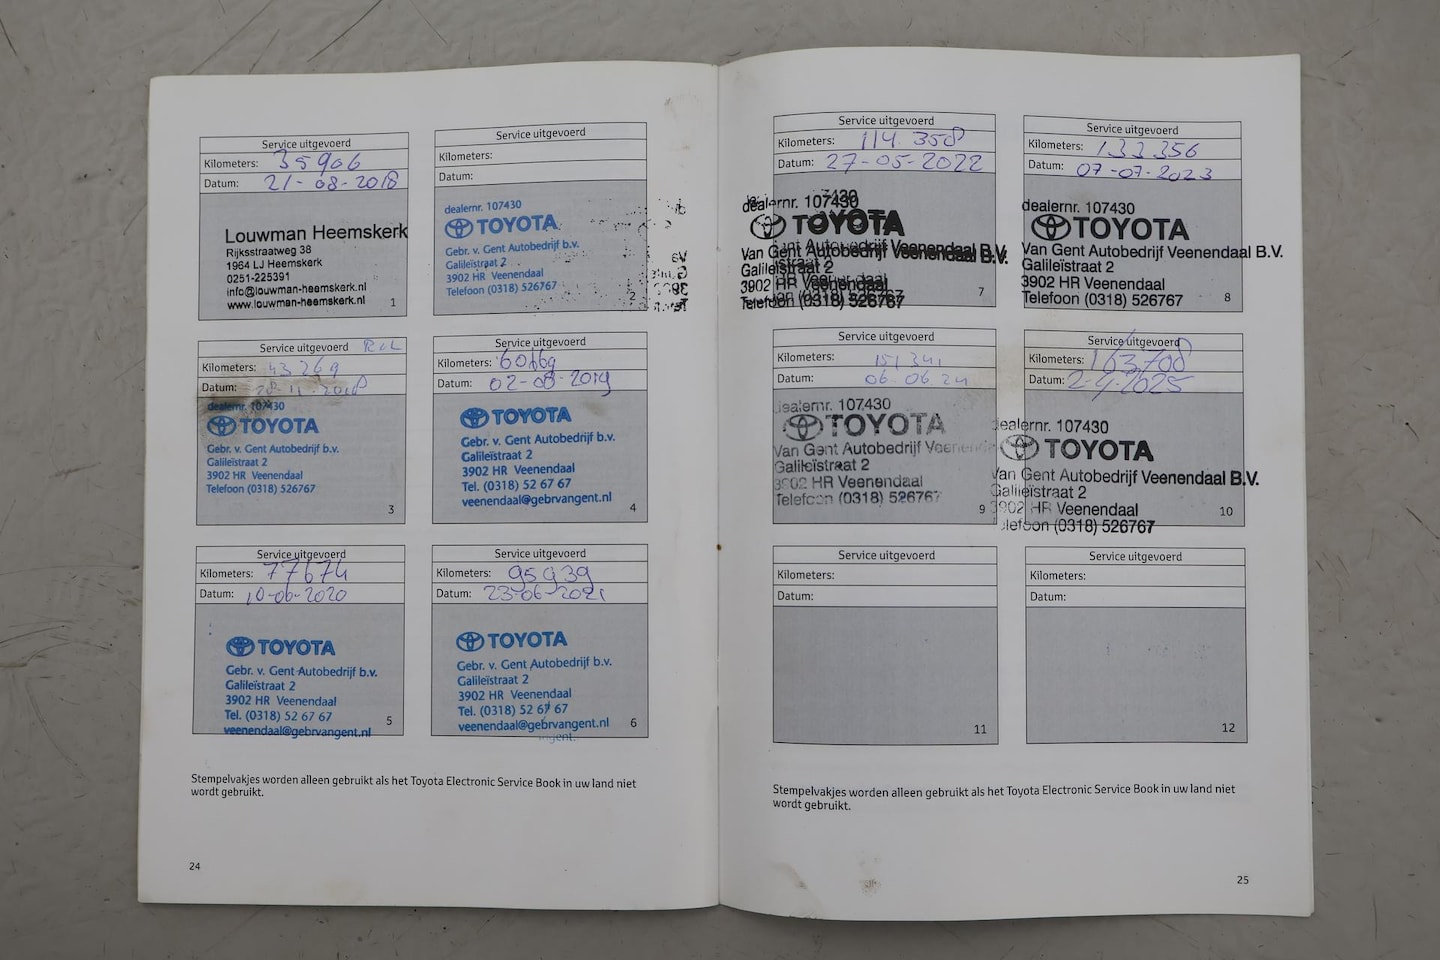 Service uitgevoerd
Kilometers: 35906
Datum: 21-08-2018
Louwman Heemskerk
Rijksstraatweg 38
1964 LJ Heemskerk
0251-225391
info@louwman-heemskerk.nl
www.louwman-heemskerk.nl
1
Service uitgevoerd
Kilometers:
Datum:
dealernr. 107430
TOYOTA
Gebr. v. Gent Autobedrijf b.v.
Galileïstraat 2
3902 HR Veenendaal
Telefoon (0318) 526767
2
Service uitgevoerd
Kilometers: 43269
Datum: 28-11-2018
dealernr. 107430
TOYOTA
Gebr. v. Gent Autobedrijf b.v.
Galileïstraat 2
3902 HR Veenendaal
Telefoon (0318) 526767
3
Service uitgevoerd
Kilometers: 60169
Datum: 02-08-2019
TOYOTA
Gebr. v. Gent Autobedrijf b.v.
Galileïstraat 2
3902 HR Veenendaal
Tel. (0318) 52 67 67
veenendaal@gebrvangent.nl
4
Service uitgevoerd
Kilometers: 77674
Datum: 10-06-2020
TOYOTA
Gebr. v. Gent Autobedrijf b.v.
Galileïstraat 2
3902 HR Veenendaal
Tel. (0318) 52 67 67
veenendaal@gebrvangent.nl
5
Service uitgevoerd
Kilometers: 95939
Datum: 23-06-2021
TOYOTA
Gebr. v. Gent Autobedrijf b.v.
Galileïstraat 2
3902 HR Veenendaal
Tel. (0318) 52 67 67
veenendaal@gebrvangent.nl
6
Stempelvakjes worden alleen gebruikt als het Toyota Electronic Service Book in uw land niet
wordt gebruikt.
24
Service uitgevoerd
Kilometers: 114.358
Datum: 27-05-2022
dealernr. 107430
TOYOTA
Van Gent Autobedrijf Veenendaal B.V.
Galileïstraat 2
3902 HR Veenendaal
Telefoon (0318) 526767
7
Service uitgevoerd
Kilometers: 133356
Datum: 07-07-2023
dealernr. 107430
TOYOTA
Van Gent Autobedrijf Veenendaal B.V.
Galileïstraat 2
3902 HR Veenendaal
Telefoon (0318) 526767
8
Service uitgevoerd
Kilometers: 151341
Datum: 06.06 24
dealernr. 107430
TOYOTA
Van Gent Autobedrijf Veenendaal
Galileïstraat 2
3902 HR Veenendaal
Telefoon (0318) 526767
9
Service uitgevoerd
Kilometers: 163708
Datum: 2-4-2025
dealernr. 107430
TOYOTA
Van Gent Autobedrijf Veenendaal B.V.
Galileïstraat 2
3902 HR Veenendaal
Telefoon (0318) 526767
10
Service uitgevoerd
Kilometers:
Datum:
11
Service uitgevoerd
Kilometers:
Datum:
12
Stempelvakjes worden alleen gebruikt als het Toyota Electronic Service Book in uw land niet
wordt gebruikt.
25